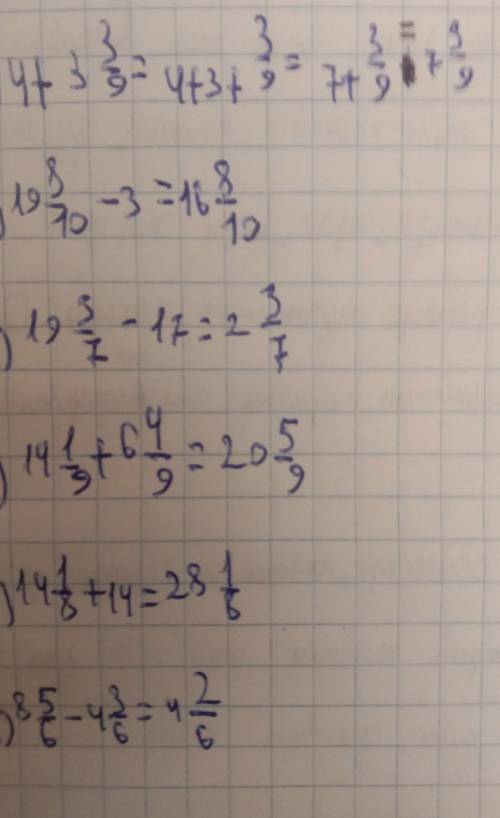 4+3 3/9 = 4+3+3/9 = 7+3/9 = 7 3/9
) 19 8/10 - 3 = 16 8/10
) 19 3/7 - 17 = 2 3/7
) 14 1/9 + 6 4/9 = 20 5/9
) 14 1/8 + 14 = 28 1/8
) 8 5/6 - 4 3/6 = 4 2/6